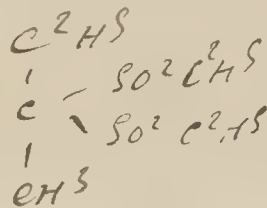 C²H⁵
C SO²C²H⁵
SO²C²H⁵
CH³